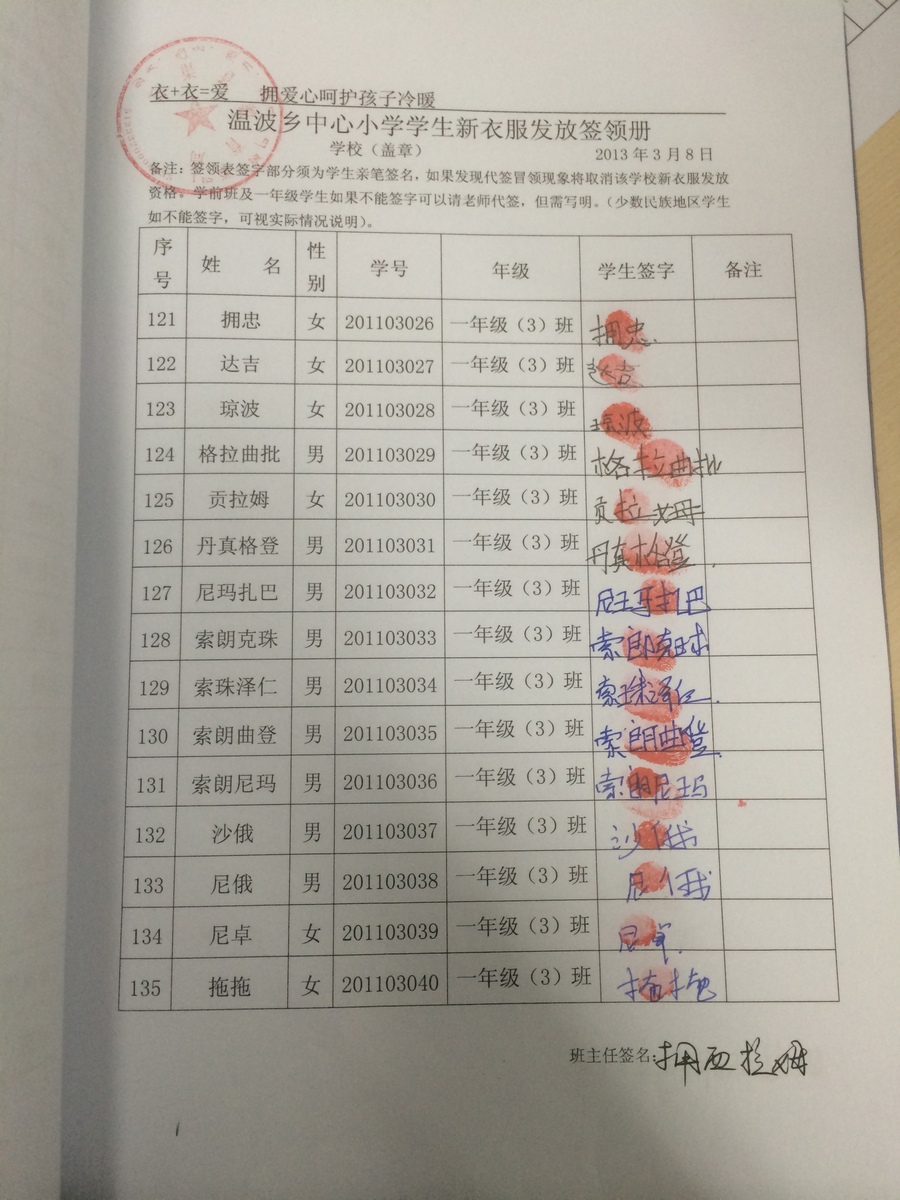 衣+衣=爱 拥爱心呵护孩子冷暖
温波乡中心小学学生新衣服发放签领册
学校（盖章） 2013年3月8日
备注：签领表签字部分须为学生亲笔签名，如果发现代签冒领现象将取消该学校新衣服发放
资格。学前班及一年级学生如果不能签字可以请老师代签，但需写明。（少数民族地区学生
如不能签字，可视实际情况说明）。
序号 姓 名 性别 学号 年级 学生签字 备注
121 拥忠 女 201103026 一年级（3）班 拥忠.
122 达吉 女 201103027 一年级（3）班 达吉
123 琼波 女 201103028 一年级（3）班 琼波
124 格拉曲批 男 201103029 一年级（3）班 格拉曲批
125 贡拉姆 女 201103030 一年级（3）班 贡拉姆
126 丹真格登 男 201103031 一年级（3）班 丹真格登.
127 尼玛扎巴 男 201103032 一年级（3）班 尼玛扎巴
128 索朗克珠 男 201103033 一年级（3）班 索朗克珠
129 索珠泽仁 男 201103034 一年级（3）班 索珠泽仁.
130 索朗曲登 男 201103035 一年级（3）班 索朗曲登.
131 索朗尼玛 男 201103036 一年级（3）班 索朗尼玛
132 沙俄 男 201103037 一年级（3）班 沙俄
133 尼俄 男 201103038 一年级（3）班 尼俄
134 尼卓 女 201103039 一年级（3）班 尼卓.
135 拖拖 女 201103040 一年级（3）班 拖拖
班主任签名:拥西拉姆